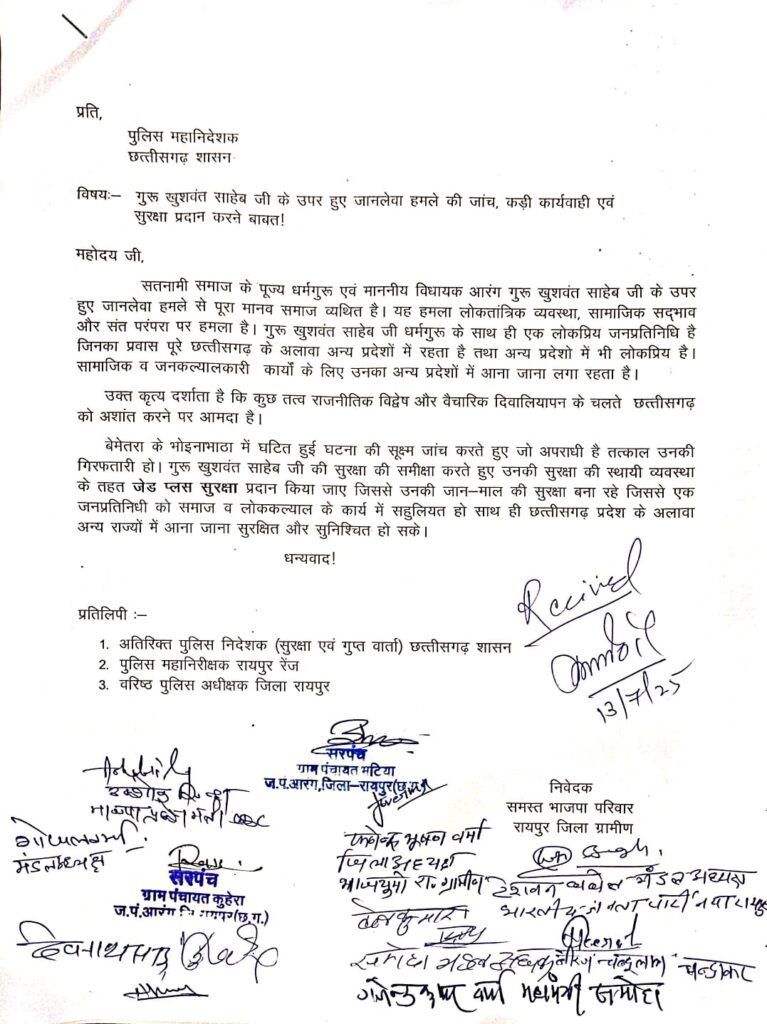 प्रति,
पुलिस महानिदेशक
छत्तीसगढ़ शासन
विषयः– गुरू खुशवंत साहेब जी के उपर हुए जानलेवा हमले की जांच, कड़ी कार्यवाही एवं
सुरक्षा प्रदान करने बाबत!
महोदय जी,
सतनामी समाज के पूज्य धर्मगुरू एवं माननीय विधायक आरंग गुरू खुशवंत साहेब जी के उपर
हुए जानलेवा हमले से पूरा मानव समाज व्यथित है। यह हमला लोकतांत्रिक व्यवस्था, सामाजिक सद्भाव
और संत परंपरा पर हमला है। गुरू खुशवंत साहेब जी धर्मगुरू के साथ ही एक लोकप्रिय जनप्रतिनिधि है
जिनका प्रवास पूरे छत्तीसगढ़ के अलावा अन्य प्रदेशों में रहता है तथा अन्य प्रदेशो में भी लोकप्रिय है।
सामाजिक व जनकल्यालकारी कार्यों के लिए उनका अन्य प्रदेशों में आना जाना लगा रहता है।
उक्त कृत्य दर्शाता है कि कुछ तत्व राजनीतिक विद्वेष और वैचारिक दिवालियापन के चलते छत्तीसगढ़
को अशांत करने पर आमदा है।
बेमेतरा के भोइनाभाठा में घटित हुई घटना की सूक्ष्म जांच करते हुए जो अपराधी है तत्काल उनकी
गिरफतारी हो। गुरू खुशवंत साहेब जी की सुरक्षा की समीक्षा करते हुए उनकी सुरक्षा की स्थायी व्यवस्था
के तहत जेड प्लस सुरक्षा प्रदान किया जाए जिससे उनकी जान–माल की सुरक्षा बना रहे जिससे एक
जनप्रतिनिधी को समाज व लोककल्याल के कार्य में सहुलियत हो साथ ही छत्तीसगढ़ प्रदेश के अलावा
अन्य राज्यों में आना जाना सुरक्षित और सुनिश्चित हो सके।
धन्यवाद!
Recived
13/7/25
प्रतिलिपी :–
1. अतिरिक्त पुलिस निदेशक (सुरक्षा एवं गुप्त वार्ता) छत्तीसगढ़ शासन
2. पुलिस महानिरीक्षक रायपुर रेंज
3. वरिष्ठ पुलिस अधीक्षक जिला रायपुर
सरपंच
ग्राम पंचायत भटिया
ज.पं.आरंग,जिला–रायपुर(छ.ग.)
निवेदक
समस्त भाजपा परिवार
रायपुर जिला ग्रामीण
मंडलाध्यक्ष
सरपंच
ग्राम पंचायत कुहेरा
ज.पं.आरंग जि.रायपुर(छ.ग.)
भूषण वर्मा
जिला अध्यक्ष
भाजयुमो रा. ग्रामीण
मंडल अध्यक्ष
भारतीय जनता पार्टी नवा रायपुर
चन्द्राकर
वर्मा महामंत्री